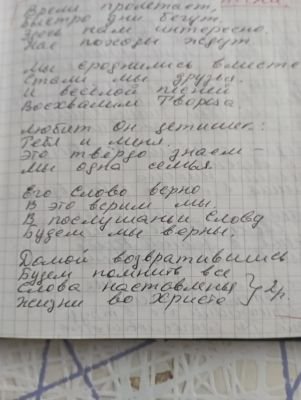 Время пролетает,
Быстро дни бегут.
Здесь нам интересно.
Нас походы ждут.
Мы сроднились вместе
Стали мы друзья.
И весёлой песней
Восхвалим Творца.
Любит Он детишек:
Тебя и меня.
Это твёрдо знаем -
Мы одна семья.
Его Слово верно
В это верим мы.
В послушаньи Слову
Будем мы верны.
Домой возвратившись
Будем помнить все
Слова наставленья } 2р.
Жизни во Христе